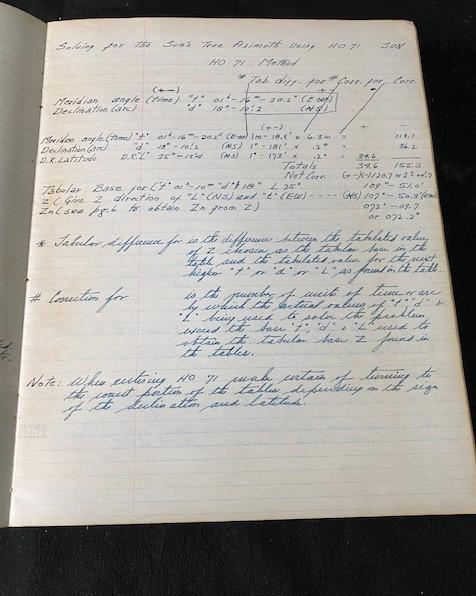 Solving for the Sun's True Azimuth Using HO 71 SUN
HO 71 Method
* Tab. diff. for # Corr. for Corr.
(+-)
Meridian angle (time) "t" 01ʰ-16ᵐ-20.2ˢ (E or W)
Declination (arc) "d" 18°-10:2 (N S)
(+-) - +
Meridian angle (time) "t" 01ʰ-16ᵐ-20.2ˢ (E or W) 1m - 18.9' x 6.3m = 119.1
Declination (arc) "d" 18°-10:2 (N S) 1° - 181' x .2° = 36.2
D.R. Latitude D.R. "L" 25°-13:0 (N S) 1° - 173' x .2° = 34.6
Totals 34.6 155.3
Net Corr. (+-)(-) 120.7
Tabular Base for (t° 01ʰ-10ᵐ "d"† 18° L 25° 109°-51.0'
Z (Give Z direction of "L" (NS) and "t" (EW) - - - - (NS) 107°-50.3'
Zn (see pg. 6 to obtain Zn from Z) 072°-09.7
or 072.2°
* Tabular difference for is the difference between the tabulated value
of Z chosen as the tabular base in the
table and the tabulated value for the next
higher "t" or "d" or "L" as found in the table.
# Correction for is the number of units of time or arc
by which the actual values of "t" "d" &
"L" being used to solve the problem
exceed the base "t", "d" & "L" used to
obtain the tabular base Z found in
the tables.
Note: When entering HO 71 make certain of turning to
the correct portion of the tables depending on the sign
of the declination and latitude.